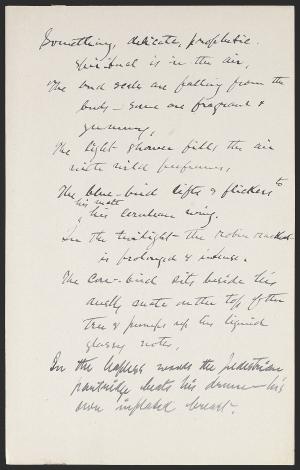 Something, delicate, prophetic.
spiritual is in the air,
The bud scales are falling from the
buds – some are fragrant &
gummy,
The light shower fills the air
with wild perfumes,
The blue-bird lifts & flickers to
his mate
his cerulean wing.
In the twilight the robin
is prolonged & intense.
The Cow-bird sits beside his
mate on the top of the
tree & pumps up his liquid
glassy notes,
In the leafless woods the pedestrian
partridge beats his drum – his
own inflated breast.